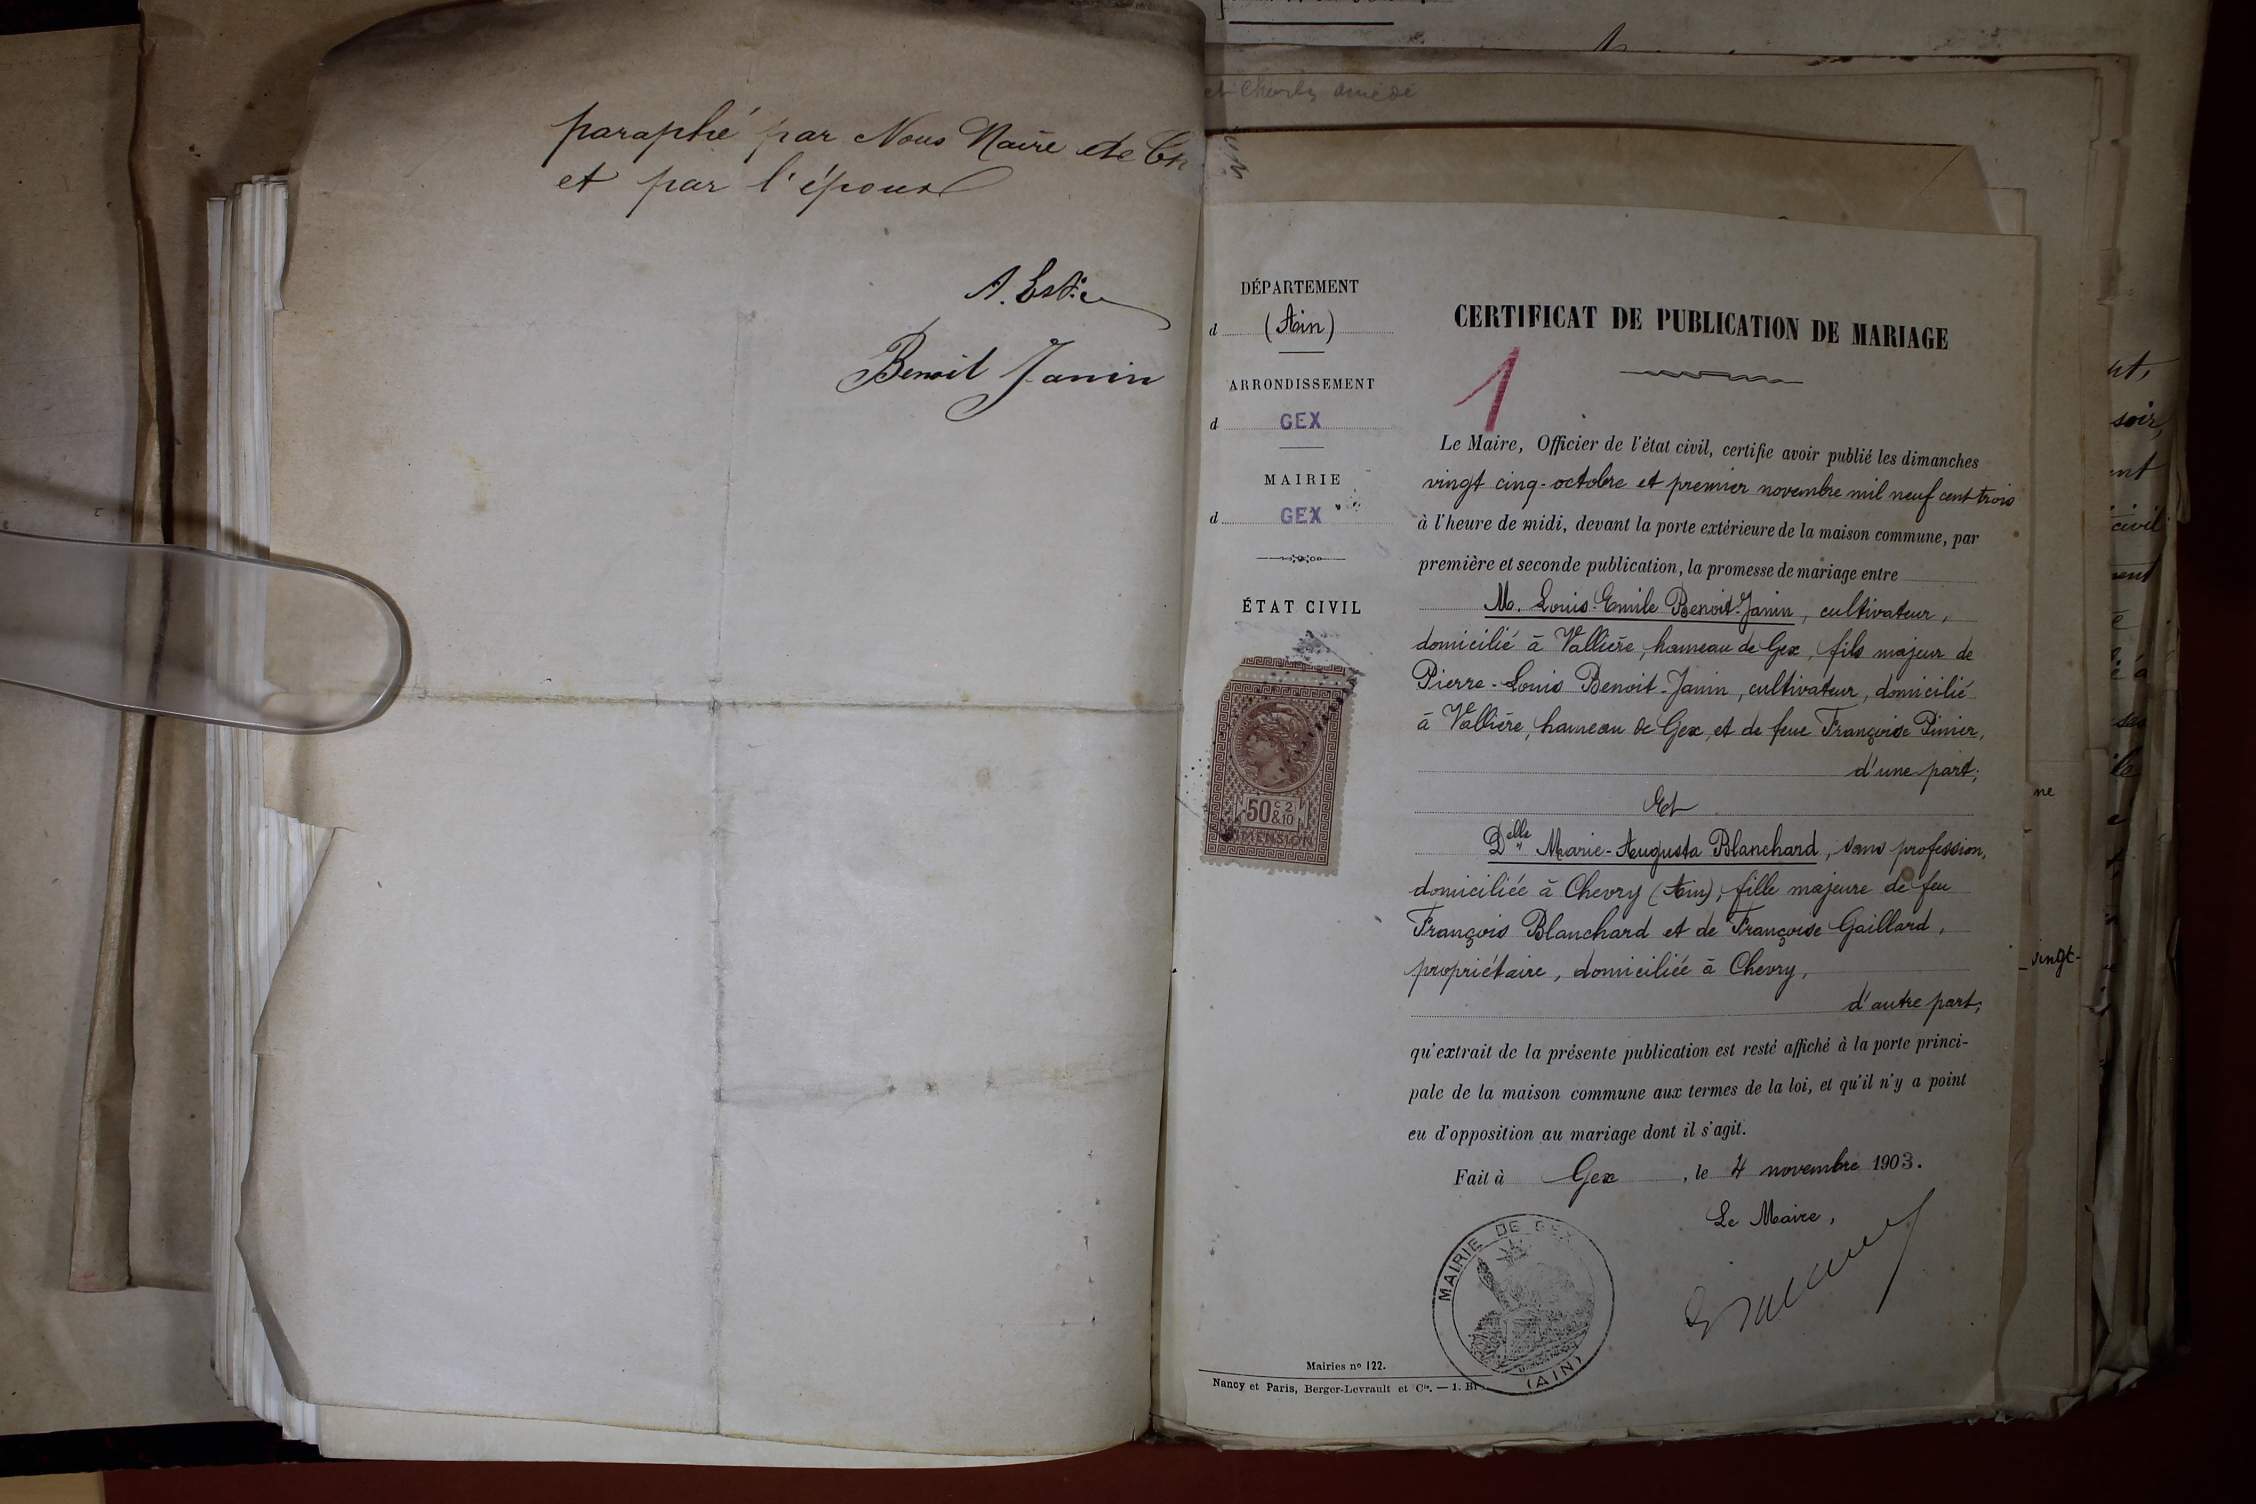 paraphé par Nous Maire de Ch
et par l'époux
A. Estie
Benoit Janin
et Charles Amédé
DÉPARTEMENT
d (Ain)
ARRONDISSEMENT
d GEX
MAIRIE
d GEX
ÉTAT CIVIL
50 c 2
& 10
DIMENSION
CERTIFICAT DE PUBLICATION DE MARIAGE
1
Le Maire, Officier de l'état civil, certifie avoir publié les dimanches
vingt cinq-octobre et premier novembre mil neuf cent trois
à l'heure de midi, devant la porte extérieure de la maison commune, par
première et seconde publication, la promesse de mariage entre
M. Louis-Emile Benoit-Janin, cultivateur,
domicilié à Vallière, hameau de Gex, fils majeur de
Pierre-Louis Benoit-Janin, cultivateur, domicilié
à Vallière, hameau de Gex, et de feue Françoise Pinier,
d'une part;
Et
Delle Marie-Augusta Blanchard, sans profession,
domiciliée à Chevry (Ain), fille majeure de feu
François Blanchard et de Françoise Gaillard,
propriétaire, domiciliée à Chevry,
d'autre part;
qu'extrait de la présente publication est resté affiché à la porte princi-
pale de la maison commune aux termes de la loi, et qu'il n'y a point
eu d'opposition au mariage dont il s'agit.
Fait à Gex, le 4 novembre 1903.
Le Maire,
MAIRIE DE GEX
(AIN)
Mairies no 122.
Nancy et Paris, Berger-Levrault et Cie. — 1. Br
soir,
civil
ne
vingt-